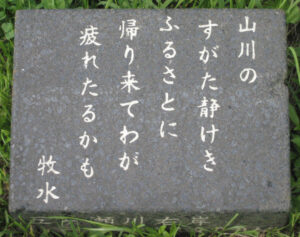 山川の
すがた静けき
ふるさとに
帰り来てわが
疲れたるかも
牧水